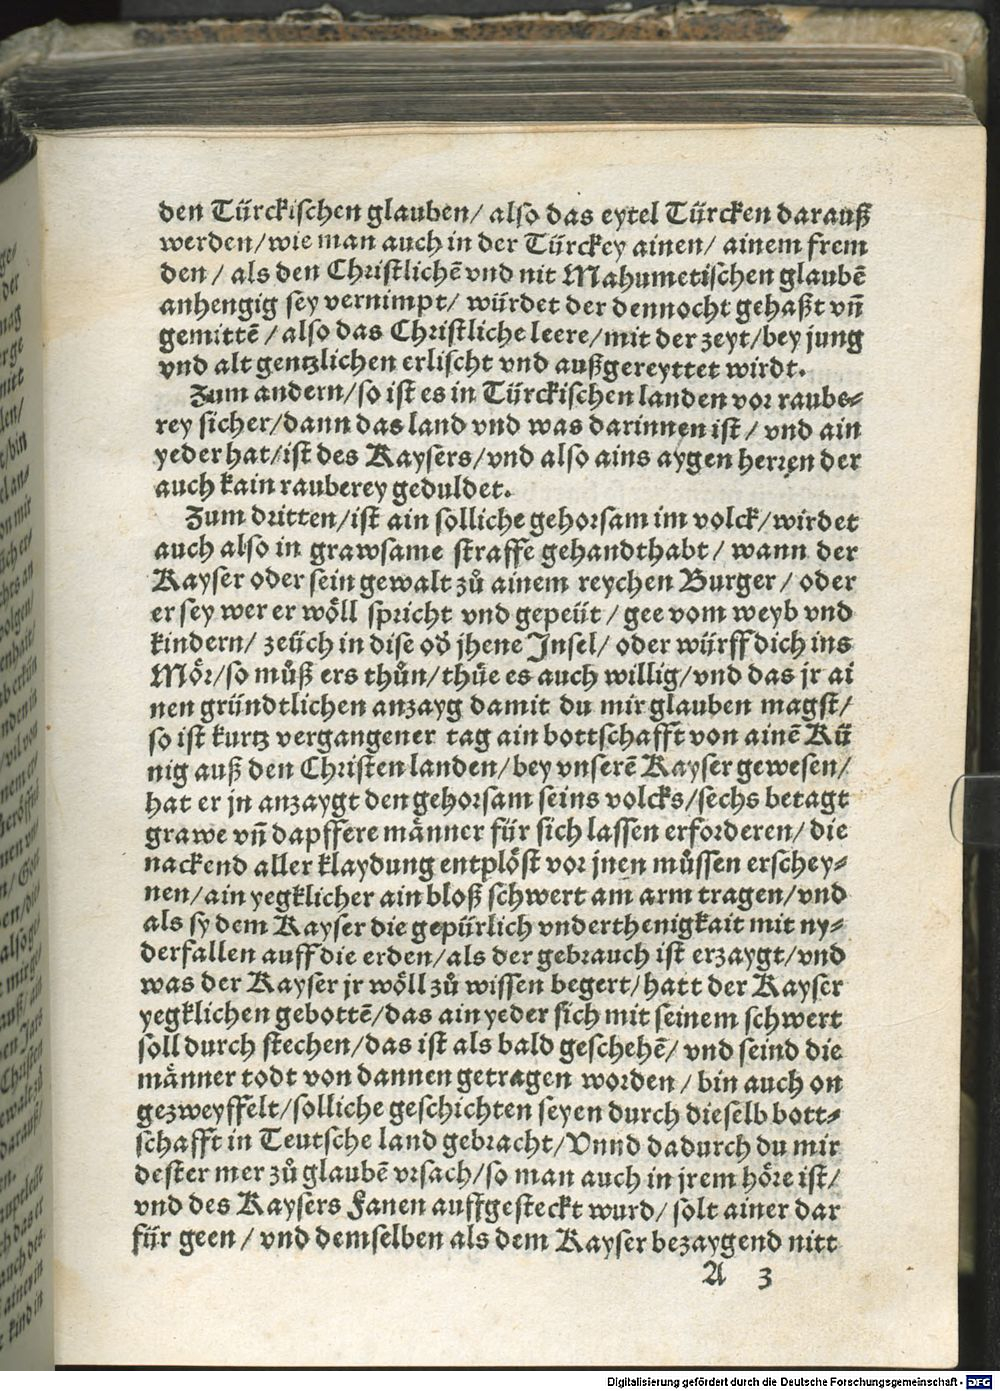 den Türckischen glauben/ also das eytel Türcken darauß
werden/wie man auch in der Türckey ainen/ ainem frem
den/ als den Christlichē vnd nit Mahumetischen glaubē
anhengig sey vernimpt/ würdet der dennocht gehaßt vn̄
gemittē/also das Christliche leere/mit der zeyt/bey jung
vnd alt gentzlichen erlischt vnd außgereyttet wirdt.
Zum andern/so ist es in Türckischen landen vor raube⸗
rey sicher/dann das land vnd was darinnen ist/ vnd ain
yeder hat/ist des Kaysers/vnd also ains aygen herren der
auch kain rauberey geduldet.
Zum dritten/ist ain solliche gehorsam im volck/wirdet
auch also in grawsame straffe gehandthabt/ wann der
Kayser oder sein gewalt zů ainem reychen Burger/ oder
er sey wer er wöll spricht vnd gepeüt/gee vom weyb vnd
kindern/ zeüch in dise od̕ jhene Jnsel/ oder würff dich ins
Mör/so můß ers thůn/thüe es auch willig/vnd das jr ai
nen gründtlichen anzayg damit du mir glauben magst/
so ist kurtz vergangener tag ain bottschafft von ainē Kü
nig auß den Christen landen/bey vnserē Kayser gewesen/
hat er jn anzaygt den gehorsam seins volcks/sechs betagt
grawe vn̄ dapffere männer für sich lassen erforderen/ die
nackend aller klaydung entplöst vor jnen müssen erschey⸗
nen/ain yegklicher ain bloß schwert am arm tragen/vnd
als sy dem Kayser die gepürlich vnderthenigkait mit ny⸗
derfallen auff die erden/als der gebrauch ist erzaygt/vnd
was der Kayser jr wöll zů wissen begert/hatt der Kayser
yegklichen gebottē/das ain yeder sich mit seinem schwert
soll durch stechen/das ist als bald geschehē/ vnd seind die
männer todt von dannen getragen worden/bin auch on
gezweyffelt/solliche geschichten seyen durch dieselb bott⸗
schafft in Teutsche land gebracht/Vnnd dadurch du mir
dester mer zů glaubē vrsach/so man auch in jrem höre ist/
vnd des Kaysers Fanen auffgesteckt wurd/ solt ainer dar
für geen/vnd demselben als dem Kayser bezaygend nitt
A 3
Digitalisierung gefördert durch die Deutsche Forschungsgemeinschaft - DFG